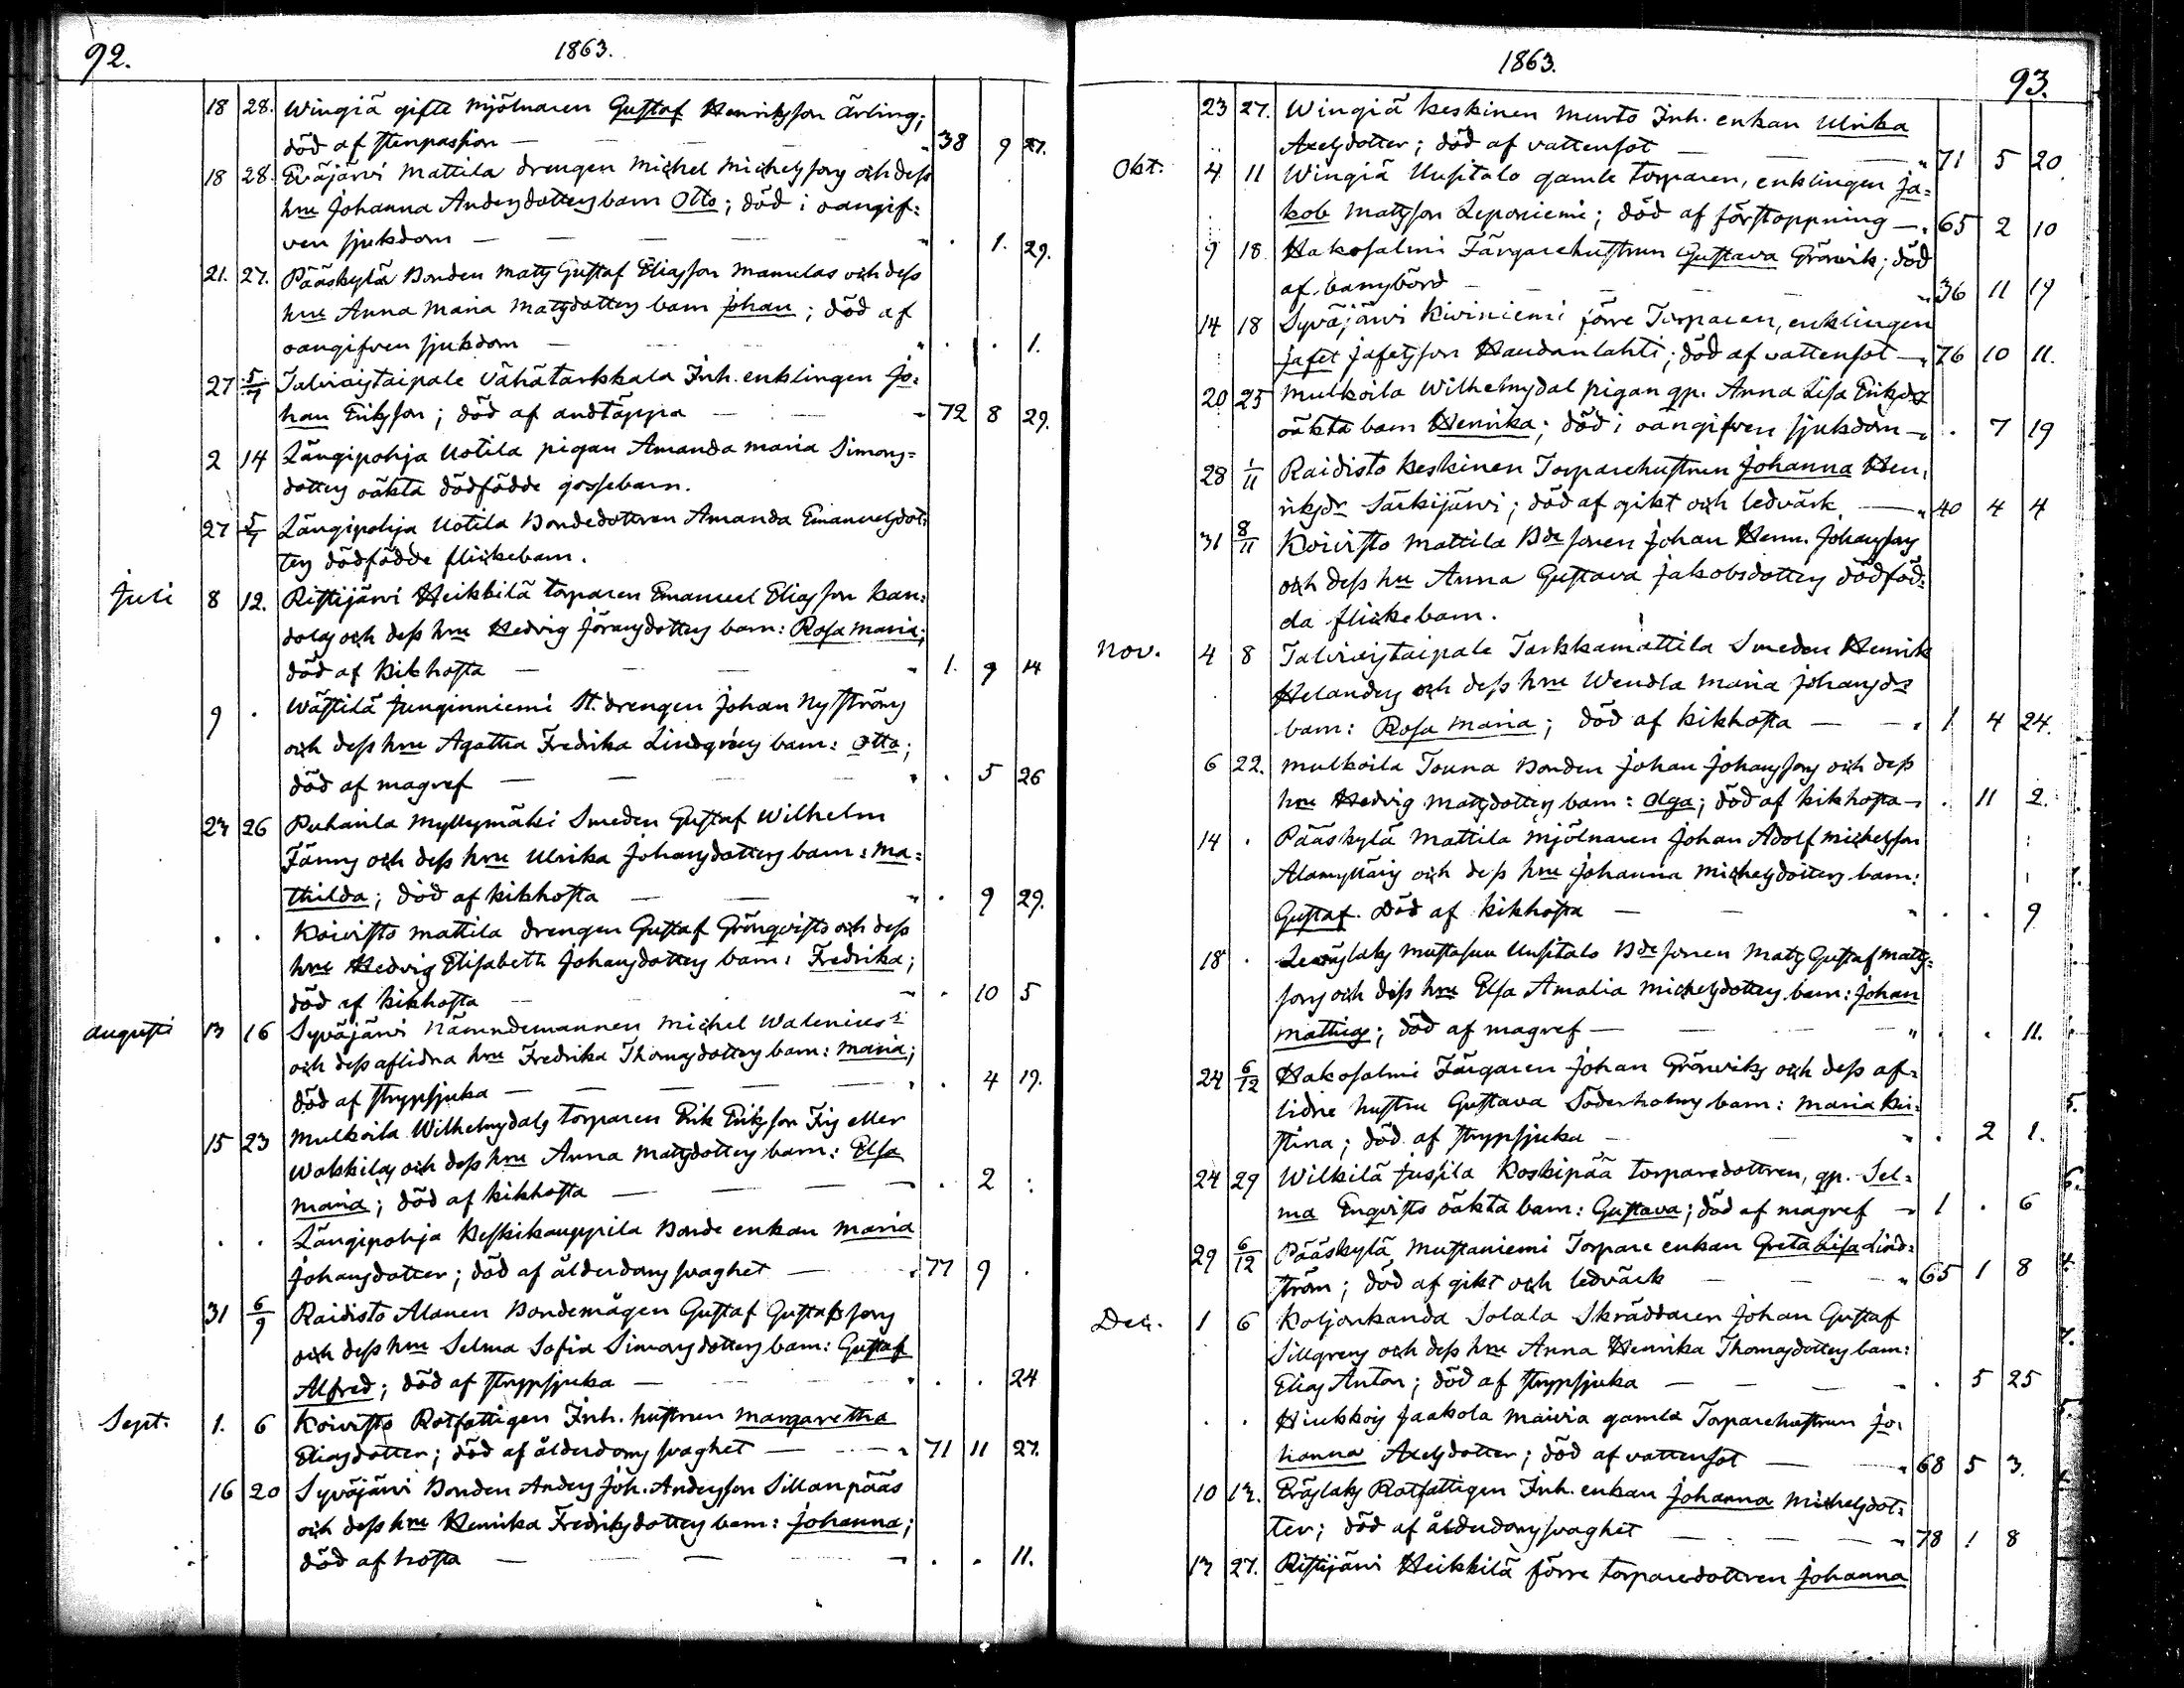 92.
1863.
18 28. Wingiä gifte Mjölnaren Gustaf Henriksson Ärling;
död af stenpassion — " 38 9 27.
18 28. Eväjärvi Mattila drengen Michel Michelssons och dess
hru Johanna Andersdotters barn Otto; död i oangif=
ven sjukdom — " . 1. 29.
21. 27. Pääskylä Bonden Matts Gustaf Eliasson Mamulas och dess
hru Anna Maria Mattsdotters barn Johan; död af
oangifven sjukdom — " . . 1.
27 5/7 Talviaistaipale Vähätarkkala Inh. enklingen Jo=
han Eriksson; död af andtäppa — " 72 8 29.
2 14 Längipohja Uotila pigan Amanda Maria Simons=
dotters oäkta dödfödde gossebarn.
27 5/7 Längipohja Uotila Bondedottren Amanda Emanuelsdot=
ters dödfödde flickebarn.
Juli 8 12. Ristijärvi Heikkilä torparen Emanuel Eliasson Kan=
dolas och dess hru Hedvig Göransdotters barn: Rosa Maria;
död af kikhosta — " 1. 9 14
9 . Wästilä Junginniemi St. drengen Johan Nyströms
och dess hru Agatha Fredrika Lindqvists barn: Otto;
död af magref — " . 5 26
23 26 Puharila Myllymäki Smeden Gustaf Wilhelm
Fänns och dess hru Ulrika Johansdotters barn: Ma=
thilda; död af kikhosta — " . 9 29.
. . Koivisto Mattila drengen Gustaf Grönqvists och dess
hru Hedvig Elisabeth Johansdotters barn: Fredrika;
död af kikhosta — " . 10 5
Augusti 13 16 Syväjärvi Nämndemannen Michel Walenius
och dess aflidna hru Fredrika Thomasdotters barn: Maria;
död af strypsjuka — " . 4 19.
15 23 Mulkoila Wilhelmsdals torparen Erik Eriksson Fris eller
Wakkilas och dess hru Anna Mattsdotters barn: Elsa
Maria; död af kikhosta — " . 2 :
. . Längipohja Keskikauppila Bonde enkan Maria
Johansdotter; död af ålderdomssvaghet — " 77 9 .
31 6/9 Raidisto Alanen Bondemågen Gustaf Gustafssons
och dess hru Selma Sofia Simonsdotters barn: Gustaf
Alfred; död af strypsjuka — " . . 24
Sept. 1. 6 Koivisto Rotfattigen Inh. hustrun Margaretha
Eliasdotter; död af ålderdomssvaghet — " 71 11 27.
16 20 Syväjärvi Bonden Anders Joh. Andersson Sillanpääs
och dess hru Henrika Fredriksdotters barn: Johanna;
död af hosta — " . . 11.
1863.
93.
23 27. Wingiä Keskinen Murto Inh. enkan Ulrika
Axelsdotter; död af vattensot — " 71 5 20
Okt. 4 11 Wingiä Uusitalo gamle torparen, enklingen Ja=
kob Mattsson Leponiemi; död af förstoppning — " 65 2 10
9 18. Hakosalmi Färgarehustrun Gustava Grönvik; död
af barnsbörd — " 36 11 19
14 18 Syväjärvi Kiviniemi förre Torparen, enklingen
Jafet Jafetsson Haudanlahti; död af vattensot — " 76 10 11.
20 25 Mulkoila Wilhelmsdal pigan qp. Anna Lisa Eriksdrs
oäkta barn Henrika; död i oangifven sjukdom — " . 7 19
28 1/11 Raidisto Keskinen Torparehustrun Johanna Hen=
riksdr Särkijärvi; död af gikt och ledvärk — " 40 4 4
31 8/11 Koivisto Mattila Bdesonen Johan Henr. Johanssons
och dess hru Anna Gustava Jakobsdotters dödföd=
da flickebarn.
Nov. 4 8 Talviaistaipale Tarkkamattila Smeden Henrik
Helanders och dess hru Wendla Maria Johansdrs
barn: Rosa Maria; död af kikhosta — " 1 4 24.
6 22. Mulkoila Touna Bonden Johan Johanssons och dess
hru Hedvig Mattsdotters barn: Olga; död af kikhosta — " . 11 2.
14 . Pääskylä Mattila Mjölnaren Johan Adolf Michelsson
Alamylläris och dess hru Johanna Michelsdotters barn:
Gustaf. Död af kikhosta — " . . 9
18 . Mustasuu Uusitalo Bdesonen Matts Gustaf Matts=
sons och dess hru Elsa Amalia Michelsdotters barn: Johan
Mattias; död af magref — " . . 11.
24 6/12 Hakosalmi Färgaren Johan Grönviks och dess af=
lidne hustru Gustava Söderholms barn: Maria Kri=
stina; död af strypsjuka — " . 2 1.
24 29 Wilkilä Jussila Koskipää torparedottren, qp. Sel=
ma Enqvists oäkta barn: Gustava; död af magref — " 1 . 6
29 6/12 Pääskylä Mustaniemi Torpare enkan Greta Lisa Lind=
ström; död af gikt och ledvärk — " 65 1 8
Dec. 1 6 Koljonkanda Solala Skräddaren Johan Gustaf
Sillgrens och dess hru Anna Henrika Thomasdotters barn:
Elias Anton; död af strypsjuka — " . 5 25
. . Hiukkois Jaakola Maivia gamla Torparehustrun Jo=
hanna Axelsdotter; död af vattensot — " 68 5 3.
10 13. Eräslaks Rotfattigen Inh. enkan Johanna Michelsdot=
ter; död af ålderdomssvaghet — " 78 1 8
13 27. Ristijärvi Heikkilä förre torparedottren Johanna